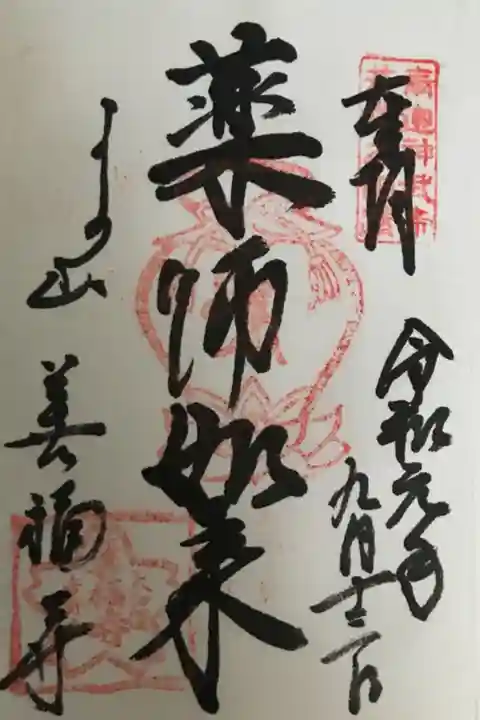 奉拝
令和元年
九月
薬師如来
よしの山
善福寺